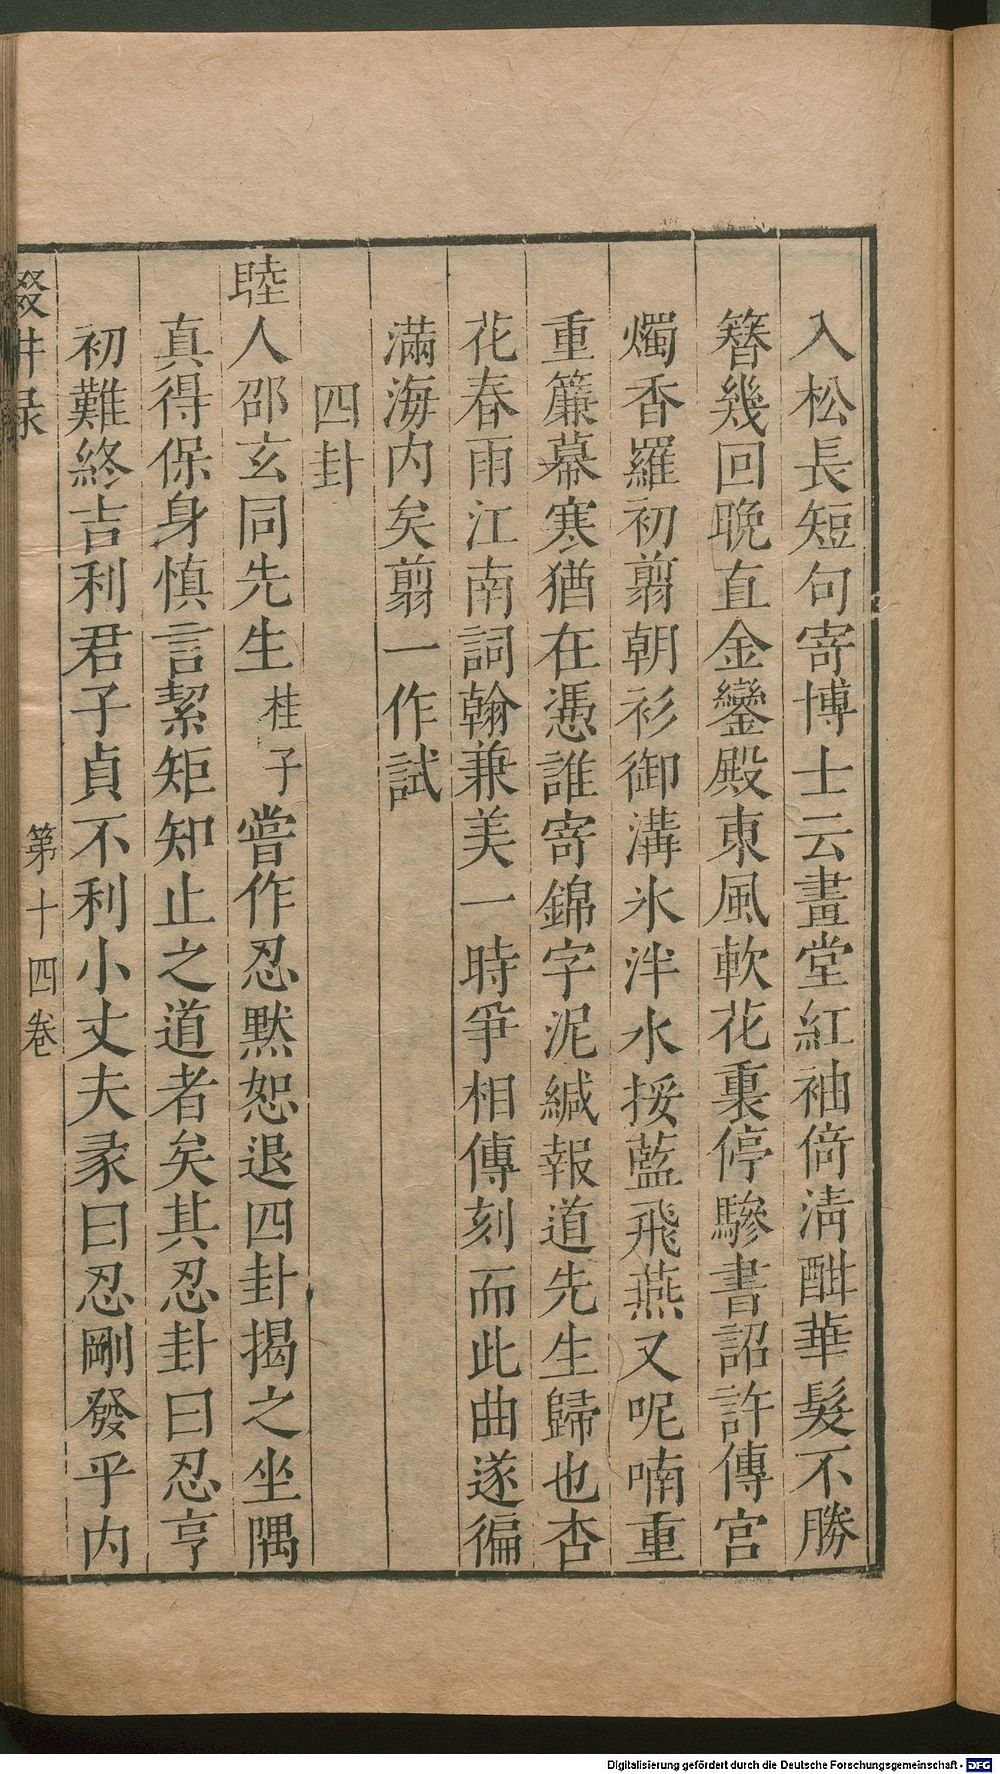 入松長短句寄博士云畫堂紅袖倚清酣華髮不勝
簪幾回晚直金鑾殿東風軟花裏停驂書詔許傳宮
燭香羅初翦朝衫御溝氷泮水挼藍飛燕又呢喃重
重簾幕寒猶在憑誰寄錦字泥緘報道先生歸也杏
花春雨江南詞翰兼美一時爭相傳刻而此曲遂徧
滿海内矣翦一作試
四卦
睦人邵玄同先生桂子嘗作忍默恕退四卦揭之坐隅
真得保身慎言絜矩知止之道者矣其忍卦曰忍亨
初難終吉利君子貞不利小丈夫彖曰忍剛發乎内
第十四卷
Digitalisierung gefördert durch die Deutsche Forschungsgemeinschaft - DFG